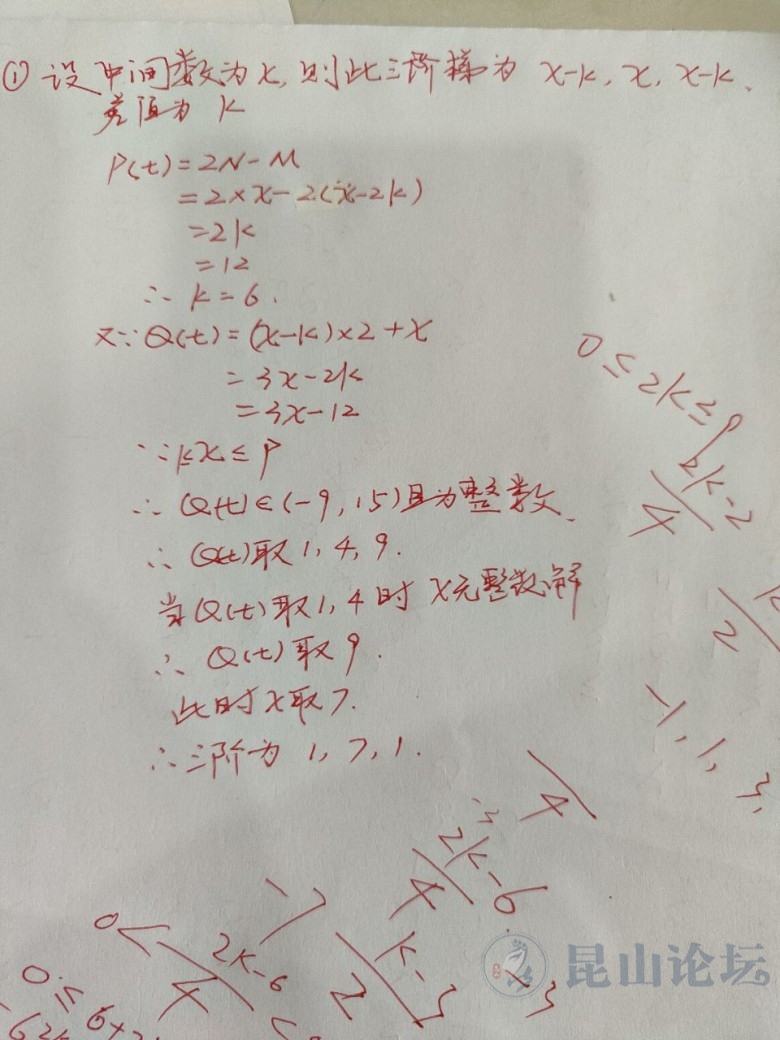 ① 设中间数为x,则此三阶梯为 x-k, x, x-k、
差值为 k
P(t)=2N-M
=2×x-2(x-2k)
=2k
=12
∴ k=6.
又∵Q(t)=(x-k)×2+x
=3x-2k
=3x-12
∵ kx≤9
∴ Q(t)∈(-9,15)且为整数、
∴ Q(t)取1,4,9.
当Q(t)取1,4时 x无整数解
∴ Q(t)取9.
此时x取7.
∴三阶为 1,7,1.
0≤2k≤9
2k-2
4
2
-1,1,3,
4
2k-6
4
-7
k-3
2
0<
2k-6
4
0≤6+2
昆山论坛